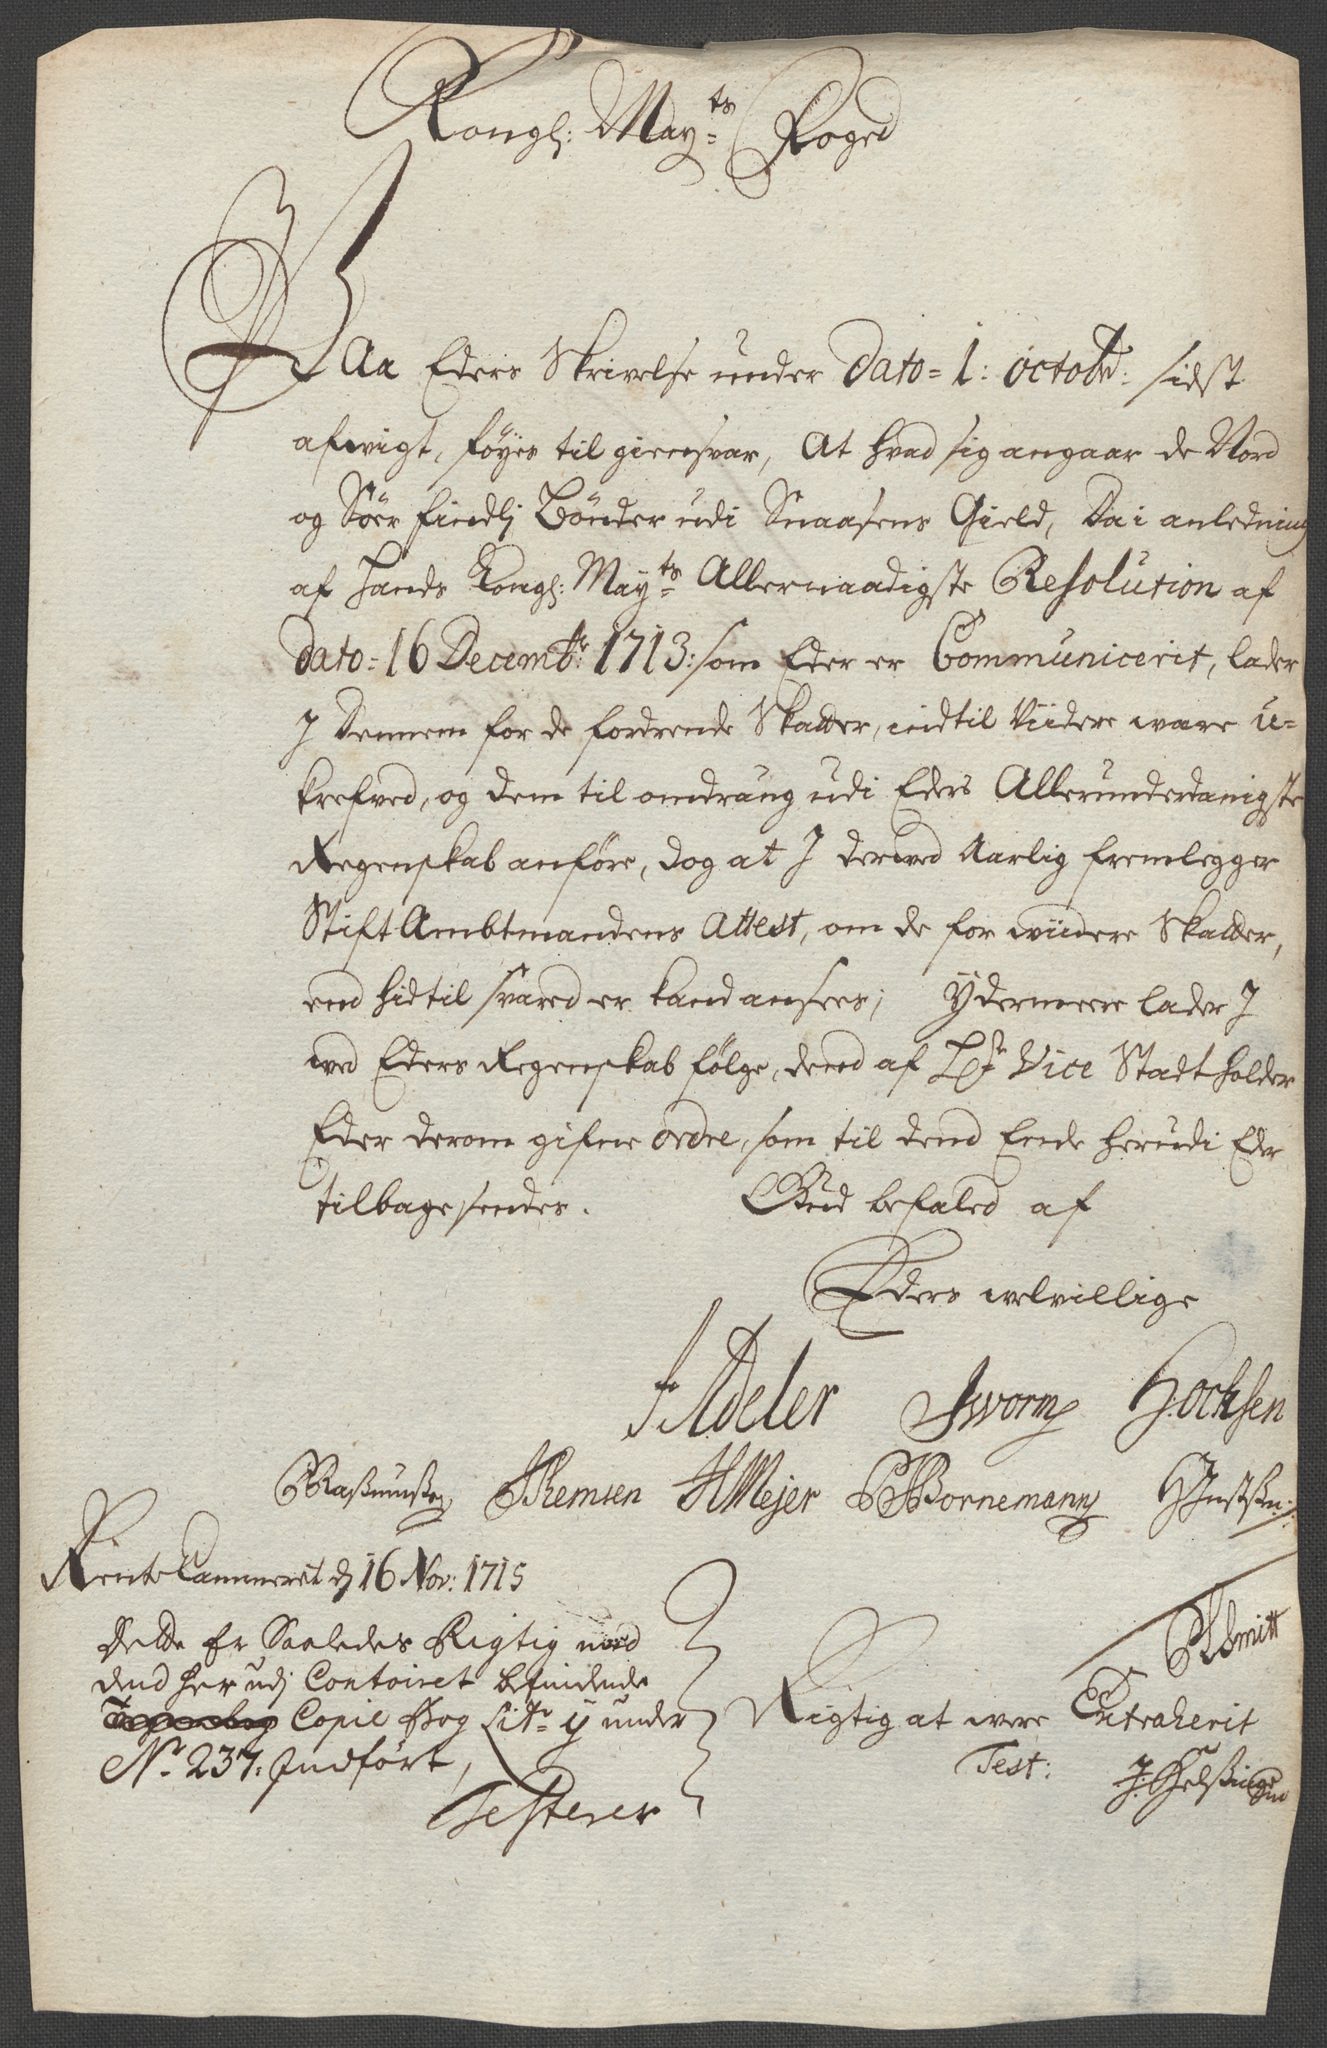 Kongl: May:ts Foged
Paa Eders Skrivelse under Dato= 1: octobr: sidst
afvigt, föyes til giensvar, At hvad sig angaar de Nord
og Söer findlj Bönder udi Snaasens Gield, Da i anledning
af Hands Kongl: May:ts Allernaadigste Resolution af
Dato= 16 Decembr: 1713: som Eder er Communicerit, lader
J Dennem for de fordrende Skatter, indtil Viidere ware u-
krefved, og dem til omdrang udi Eders Allerunderdanigste
Regenskab anföre, dog at J derved Aarlig fremlegger
Stift Ambtmandens Attest, om de for wiidere Skatter,
end hidtil svared er kand ansees; Ydermeere lader J
wed Eders Regenskab fölge, dend af Hr Vice Stadtholder
Eder derom gifne ordre, som til dend Ende herudi Eder
tilbage sendes. Gud befaled af
Eders welvillige
F Adeler J worm H: ocksen
C Rasmussen T Remsen H Mejer P H Bornemann H Justsen:
Rente Cammerit dj 16 Nov: 1715
C Schmitt
Dette Er Saaledes Rigtig med
dend her udj Contoiret befindende
Copie Bog Litr: y under
No. 237: Indfört,
Testerer
Rigtig at were Extraherit
Test: